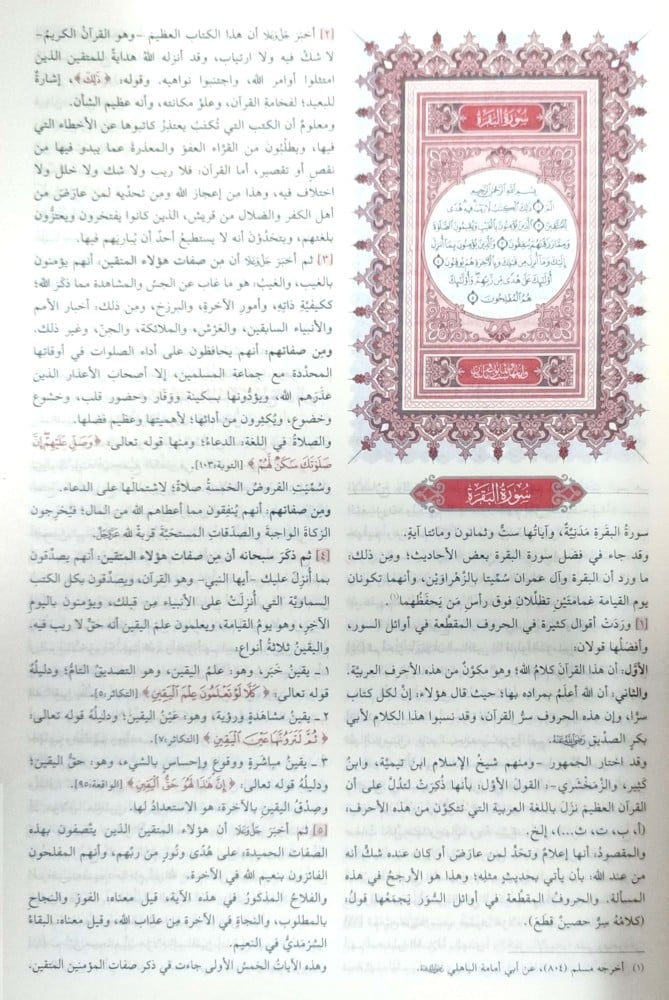 سُورَةُ البَقَرَةِ
بِسْمِ اللَّهِ الرَّحْمَٰنِ الرَّحِيمِ
الٓمٓ ۝١ ذَٰلِكَ الْكِتَٰبُ لَا رَيْبَ فِيهِ هُدًى
لِّلْمُتَّقِينَ ۝٢ الَّذِينَ يُؤْمِنُونَ بِالْغَيْبِ وَيُقِيمُونَ الصَّلَوٰةَ
وَمِمَّا رَزَقْنَٰهُمْ يُنفِقُونَ ۝٣ وَالَّذِينَ يُؤْمِنُونَ بِمَآ أُنزِلَ
إِلَيْكَ وَمَآ أُنزِلَ مِن قَبْلِكَ وَبِالْءَاخِرَةِ هُمْ يُوقِنُونَ ۝٤
أُولَٰٓئِكَ عَلَىٰ هُدًى مِّن رَّبِّهِمْ وَأُولَٰٓئِكَ
هُمُ الْمُفْلِحُونَ ۝٥
سُورَةُ البَقَرَةِ
سورةُ البقَرةِ مَدَنِيَّةٌ، وآياتُها ستٌّ وثمانون ومائتا آيةٍ.
وقد جاء في فضل سورة البقرة بعض الأحاديث؛ ومِن ذلك:
ما ورد أن البقرة وآل عمران سُمِّيتا بالزَّهْراوَيْن، وأنهما تكونان
يوم القيامة غمامَتَيْنِ تظلِّلان فوق رأس مَن يَحفَظُهما(١).
[١] ورَدَتْ أقوال كثيرة في الحروف المقطَّعة في أوائل السور،
وأفضَلُها قولان:
الأوَّل: أن هذا القرآن كلامُ الله؛ وهو مكوَّنٌ من هذه الأحرف العربيَّة.
والثاني: أن الله أعلَمُ بمراده بها؛ حيث قال هؤلاء: إنَّ لكل كتاب
سرًّا، وإن هذه الحروف سرُّ القرآن، وقد نسَبوا هذا الكلام لأبي
بكرٍ الصدِّيق رضي الله عنه.
وقد اختار الجمهور -ومنهم شيخُ الإسلام ابن تيميَّة، وابنُ
كَثِير، والزَّمَخْشَري-: القولَ الأوَّل: بأنها ذُكِرَتْ لتدُلَّ على أن
القرآن العظيم نزَلَ باللغة العربية التي تتكوَّن من هذه الأحرف:
(أ، ب، ت، ث...)، إلخ.
والمقصودُ: أنها إعلامٌ وتحَدٍّ لمن عارَضَ أو كان عنده شكٌّ أنه
من عند الله: بأن يأتي بحديثٍ مثلِه؛ وهذا هو الأرجحُ في هذه
المسألة. والحروف المقطَّعة في أوائل السُّوَر يَجمَعُها قولُ:
(كلامُهُ سِرٌّ حصينٌ قطَعَ).
(١) أخرجه مسلم (٨٠٤)، عن أبي أمامة الباهلي رضي الله عنه.
[٢] أخبَرَ جَلَّ وَعَلَا أن هذا الكتاب العظيم -وهو القرآنُ الكريمُ-
لا شكَّ فيه ولا ارتياب، وقد أنزله اللهُ هدايةً للمتقين الذين
امتثلوا أوامر الله، واجتنبوا نواهيه. وقوله: ﴿ذَٰلِكَ﴾، إشارةٌ
للبعيد؛ لفخامة القرآن، وعلوِّ مكانته، وأنه عظيم الشأن.
ومعلومٌ أن الكتب التي تُكتَبُ يعتذرُ كاتبوها عن الأخطاء التي
فيها، ويطلُبُون من القرَّاء العفوَ والمعذرةَ عما يبدو فيها مِن
نقصٍ أو تقصير، أما القرآن: فلا ريب ولا شك ولا خلل ولا
اختلاف فيه، وهذا من إعجاز الله ومن تحدِّيه لمن عارَضَ من
أهل الكفر والضلال من قريش، الذين كانوا يفتخرون ويعتزُّون
بلغتهم، ويتحَدَّوْنَ أنه لا يستطيعُ أحدٌ أن يُبارِيَهم فيها.
[٣] ثم أخبَرَ جَلَّ وَعَلَا أن مِن صفات هؤلاء المتقين: أنهم يؤمنون
بالغيب، والغيبُ: هو ما غاب عن الحِسِّ والمشاهدة مما ذكَرَ الله؛
ككيفيَّةِ ذاتِهِ، وأمورِ الآخرةِ، والبرزخ، ومن ذلك: أخبارُ الأمم
والأنبياء السابقين، والعَرْش، والملائكة، والجنّ، وغير ذلك.
ومِن صفاتهم: أنهم يحافظون على أداء الصلوات في أوقاتها
المحدَّدة مع جماعة المسلمين، إلا أصحابَ الأعذار الذين
عذَرَهم الله، ويؤدُّونها بسكينة ووَقار وحضور قلب، وخشوع
وخضوع، ويُكثِرون من أدائها؛ لأهميتها وعظيم فضلها.
والصلاةُ في اللغة: الدعاءُ؛ ومنها قوله تعالى: ﴿وَصَلِّ عَلَيْهِمْ إِنَّ
صَلَوٰتَكَ سَكَنٌ لَّهُمْ﴾ [التوبة:١٠٣].
وسُمِّيَتِ الفروضُ الخمسةُ صلاةً؛ لاشتمالها على الدعاء.
ومِن صفاتهم: أنهم يُنفِقون مما أعطاهم الله من المال؛ فيُخرِجون
الزكاةَ الواجبةَ والصدَقاتِ المستحَبَّةَ قربةً لله عَزَّ وَجَلَّ.
[٤] ثم ذكَرَ سبحانه أن مِن صفات هؤلاء المتقين: أنهم يصدِّقون
بما أُنزِلَ عليك -أيها النبي- وهو القرآن، ويصدِّقون بكل الكتب
السماويَّة التي أُنزِلَتْ على الأنبياء مِن قبلك، ويؤمنون باليوم
الآخِرِ، وهو يومُ القيامة، ويعلمون عِلمَ اليقين أنه حقٌّ لا ريب فيه.
واليقينُ ثلاثةُ أنواع:
١ ـ يقينُ خَبَر، وهو: علمُ اليقين، وهو: التصديق التامُّ؛ ودليلُهُ
قوله تعالى: ﴿كَلَّا لَوْ تَعْلَمُونَ عِلْمَ الْيَقِينِ﴾ [التكاثر:٥].
٢ ـ يقينُ مشاهَدةٍ ورؤية، وهو: عَيْنُ اليقين؛ ودليلُهُ قوله تعالى:
﴿ثُمَّ لَتَرَوُنَّهَا عَيْنَ الْيَقِينِ﴾ [التكاثر:٧].
٣ ـ يقينُ مباشَرةٍ ووقوعٍ وإحساسٍ بالشيء، وهو: حقُّ اليقين؛
ودليلُهُ قوله تعالى: ﴿إِنَّ هَٰذَا لَهُوَ حَقُّ الْيَقِينِ﴾ [الواقعة:٩٥].
وصِدقُ اليقينِ بالآخرة: هو الاستعدادُ لها.
[٥] ثم أخبَرَ جَلَّ وَعَلَا أن هؤلاء المتقين الذين يتَّصفون بهذه
الصفات الحميدة: على هُدًى ونُورٍ مِن ربِّهم، وأنهم المفلحون
الفائزون بنعيم الله في الآخرة.
والفلاحُ المذكورُ في هذه الآية، قيل معناه: الفوزُ والنجاح
بالمطلوب، والنجاةِ في الآخرة مِن عذاب الله، وقيل معناه: البقاءُ
السَّرْمَديُّ في النعيم.
وهذه الآياتُ الخمسُ الأولى جاءت في ذكر صفات المؤمنين المتقين.